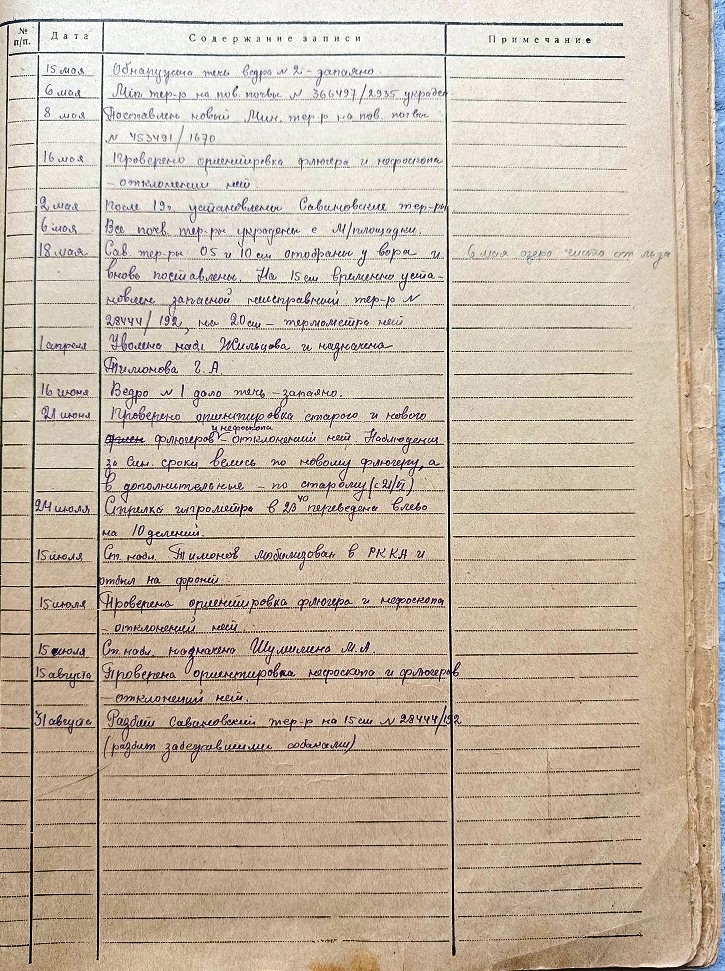 № п/п.
Дата
Содержание записи
Примечание
15 мая Обнаружена течь ведра № 2 - запаяно.
6 мая Min тер-р на пов. почвы N 366497/2935 украден
8 мая Поставлен новый Мин. тер-р на пов. почвы
N 453491/1670
16 мая Проверено ориентировка флюгера и нефоскопа
- отклонений нет
2 мая После 19ч. установлены Савиновские тер-ры
6 мая Все почв. тер-ры украдены с М/площадки.
18 мая Сав тер-ры 05 и 10 см отобраны у вора и 6 мая озеро чисто от льда
вновь поставлены. На 15 см временно уста-
новлен запасной неисправный тер-р N
28444/192, на 20 см - термометра нет
1 апреля Уволена набл Жильцова и назначена
Тимонова Г. А.
16 июня Ведро № 1 дало течь - запаяно.
21 июня Проверено ориентировка старого и нового
флюгеров и нефоскопа - отклонений нет. Наблюдения
за син. сроки велись по новому флюгеру, а
в дополнительные - по старому (с 21/VI)
24 июля Стрелка гигрометра в 23 40 переведена влево
на 10 делений.
15 июля Ст. набл. Тимонов мобилизован в РККА и
отбыл на фронт.
15 июля Проверена ориентировка флюгера и нефоскопа
- отклонений нет.
15 июля Ст. набл. назначена Шумилина М.А.
15 августа Проверена ориентировка нефоскопа и флюгеров
- отклонений нет.
31 августа Разбит Савиновский тер-р на 15 см N 28444/192
(разбит забежавшими собаками)